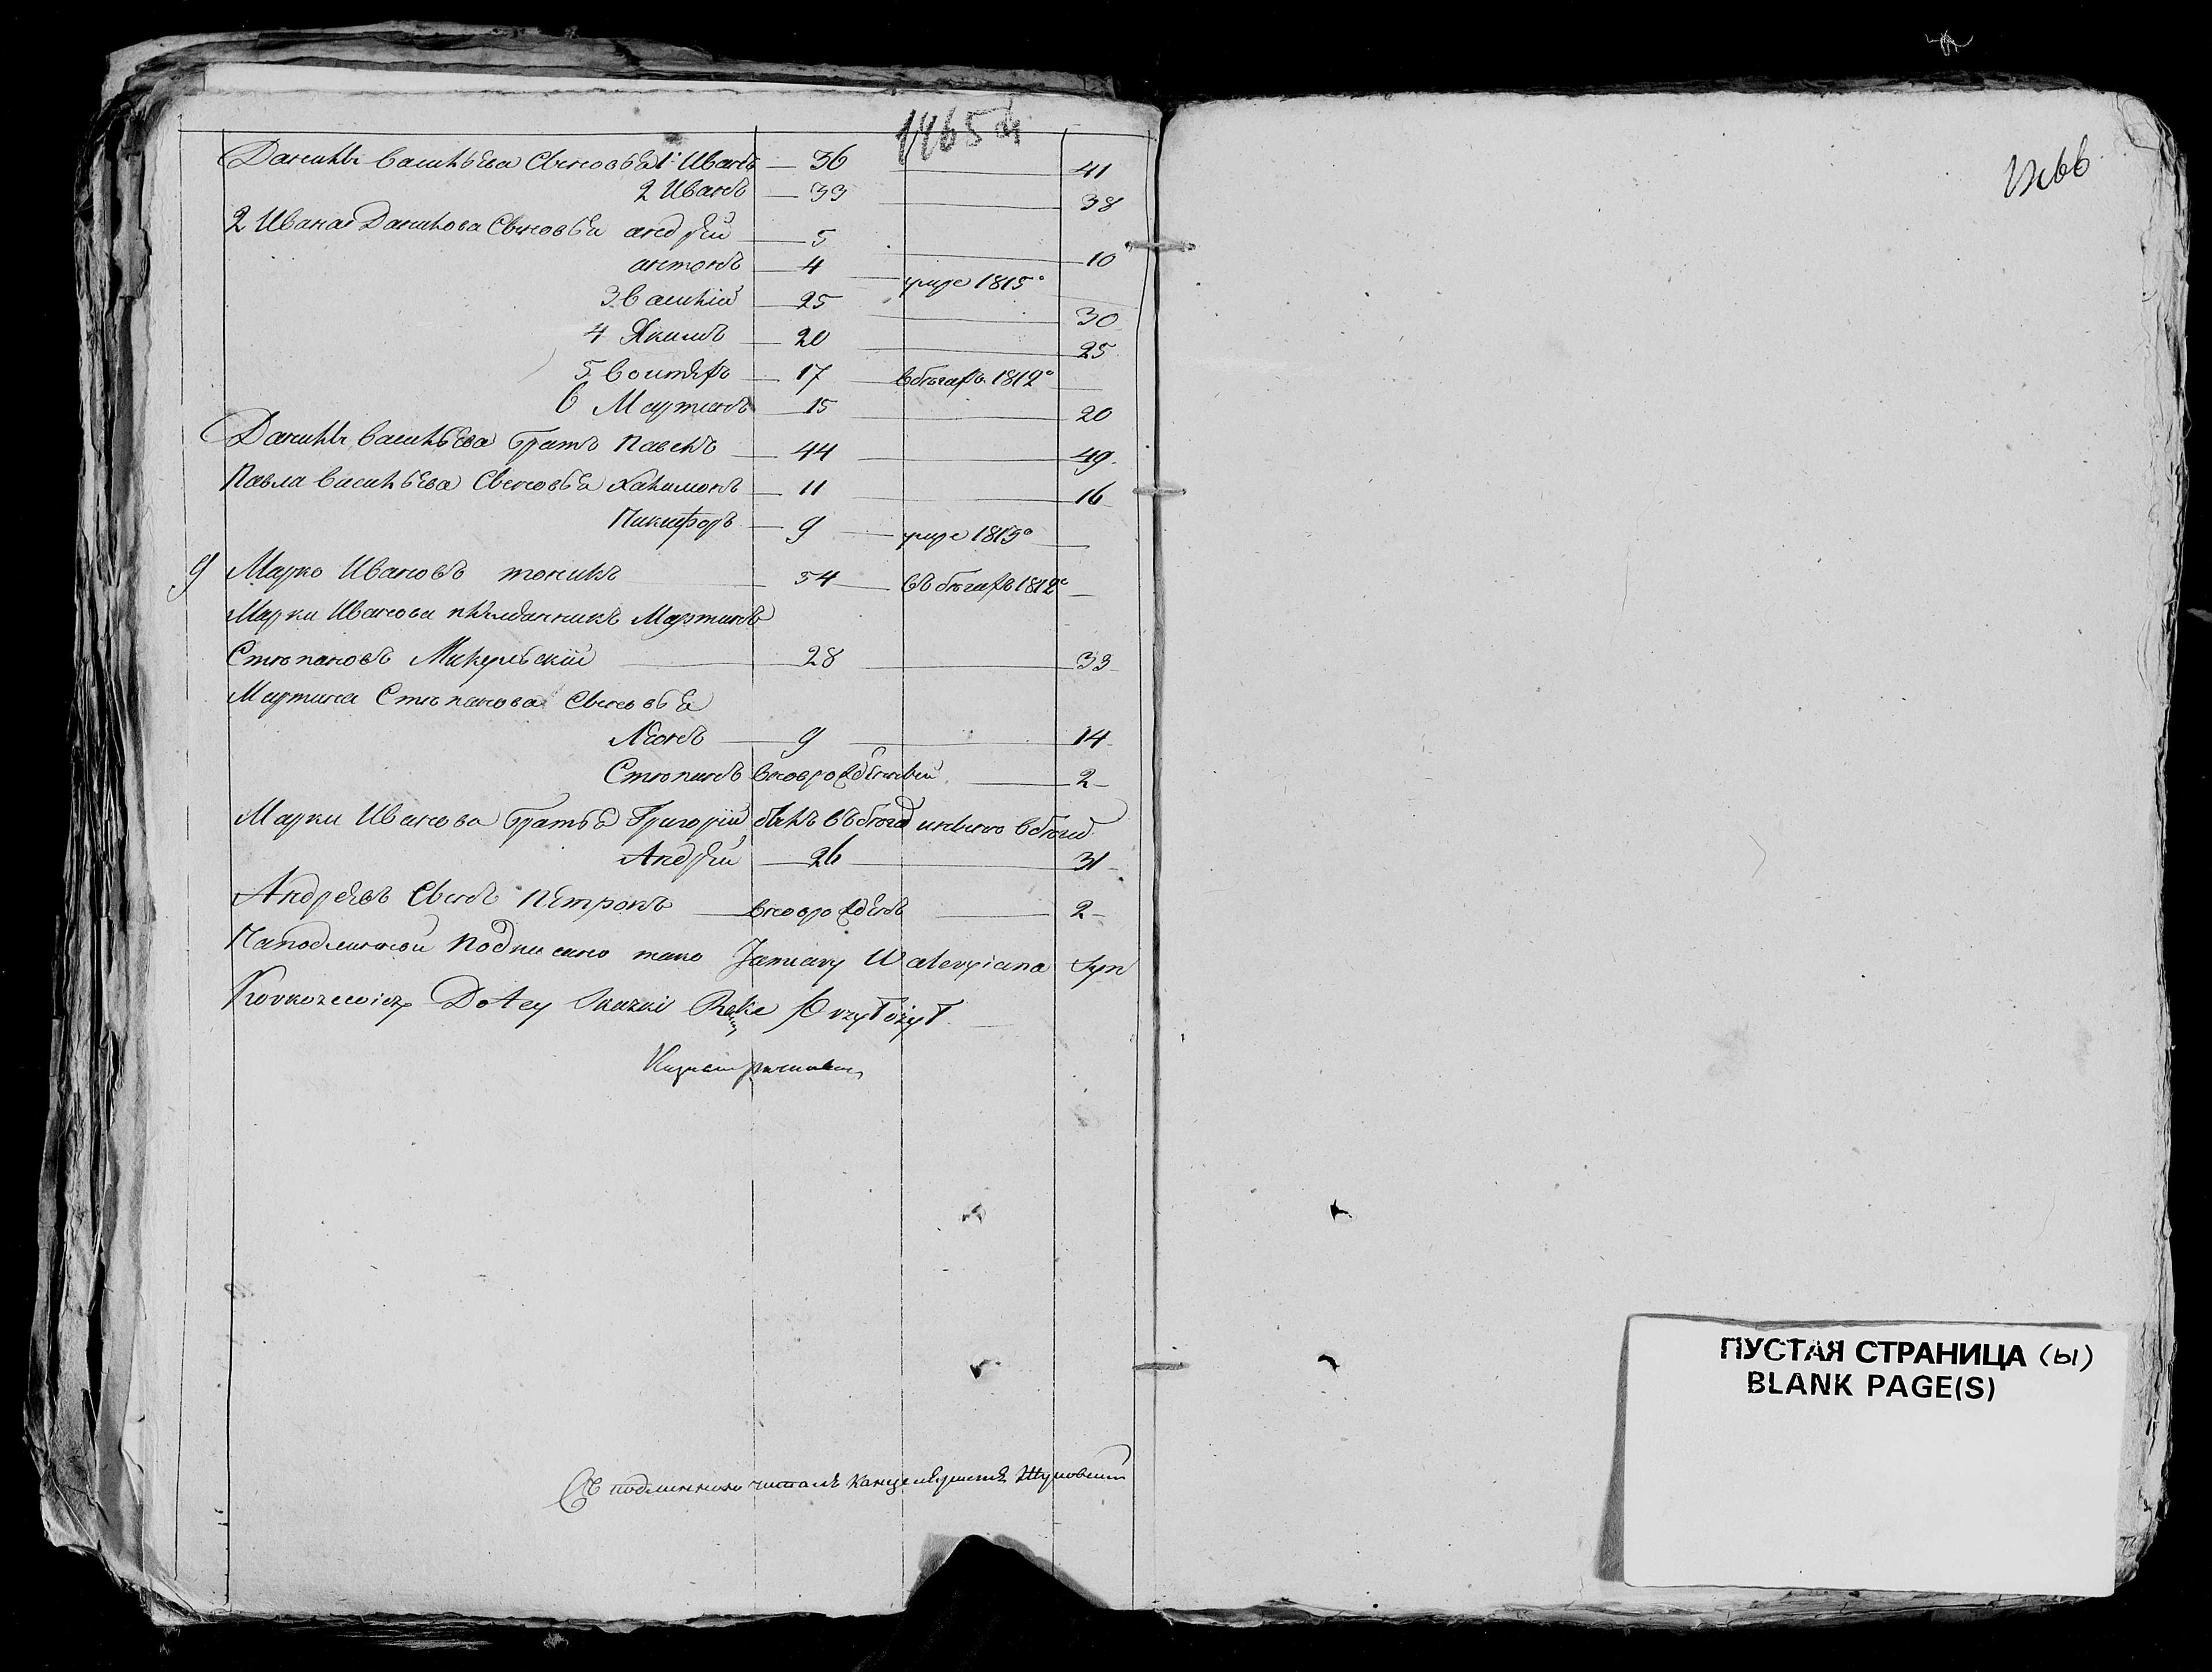 1465
Данилы Васильева Сыновья 1 Иванъ — 36 — 41
2 Иванъ — 33 — 38
2 Ивана Данилова Сыновья андрей — 5 — 10
антонъ — 4 — умре 1815°
3 Василий — 25 — 30
4 Якимъ — 20 — 25
5 — 17 — въбегахъ 1812° —
6 Мартинъ — 15 — 20
Данилы Васильева братъ Павелъ — 44 — 49
Павла Васильева Сыновья Халимонъ — 11 — 16
Никифоръ — 9 — умре 1813° —
9 Марко Ивановъ — 54 — въ бегахъ 1812° —
Марки Иванова племянникъ Мартинъ
Степановъ — 28 — 33
Мартина Степанова Сыновья
Леонъ — 9 — 14
Степанъ вноворожденный — 2
Марки Иванова братья Григорий былъ въ бегах и ныне в бегах
Андрей — 26 — 31
Андреевъ Сынъ Петронъ — вноворожденъ — 2
На подлинной подписано тако January Waleryiana Syn
Do tey Skazki Rękę Przyłożył
Съ подлиннымъ читалъ Канцеляристъ
ПУСТАЯ СТРАНИЦА (Ы)
BLANK PAGE(S)